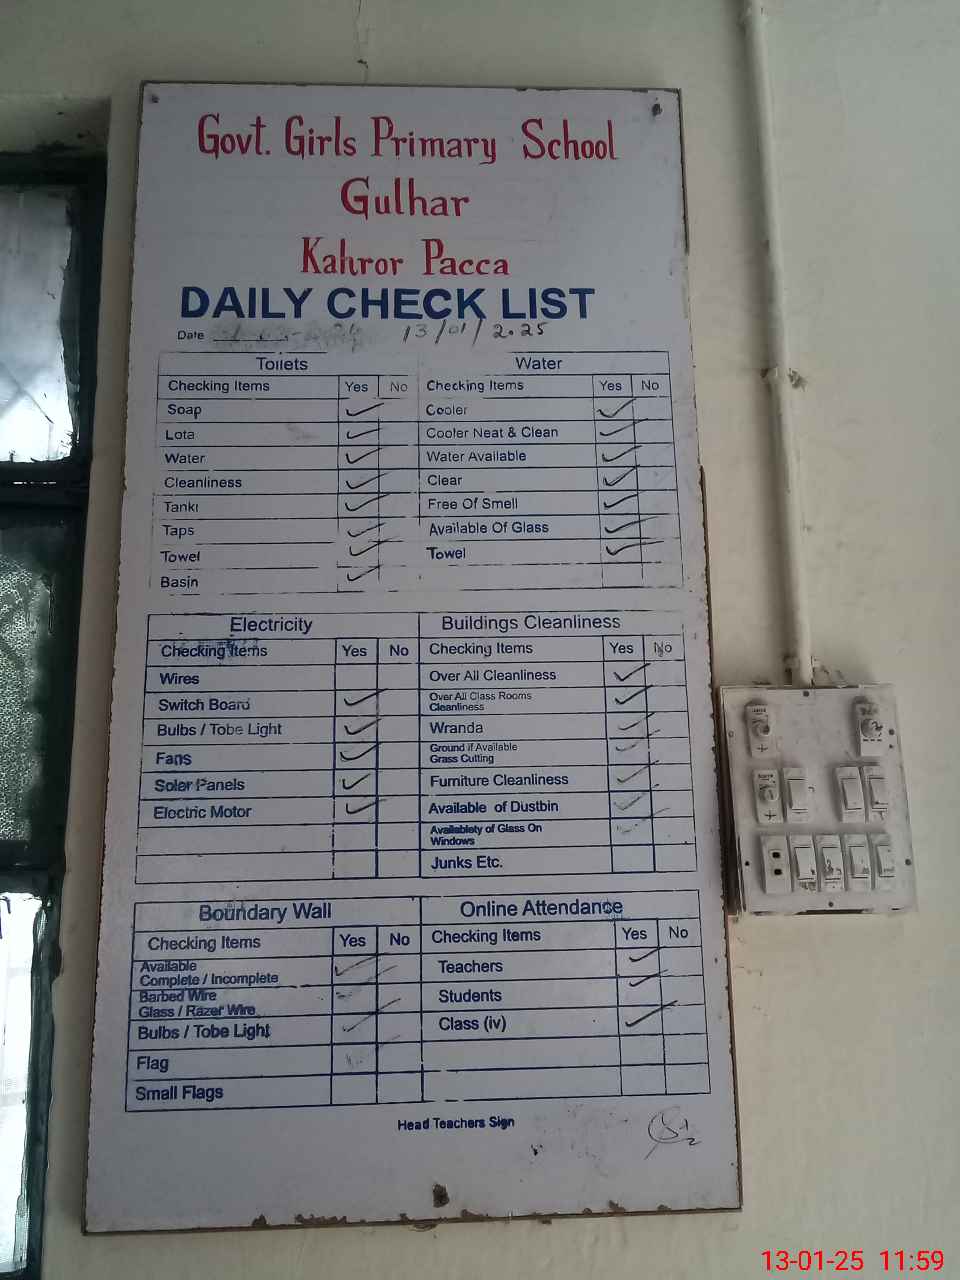 Govt. Girls Primary School
Gulhar
Kahror Pacca
DAILY CHECK LIST
Date 13/01/2025
Toilets
Checking Items Yes No
Soap ✓
Lota ✓
Water ✓
Cleanliness ✓
Tanki ✓
Taps ✓
Towel ✓
Basin ✓
Water
Checking Items Yes No
Cooler ✓
Cooler Neat & Clean ✓
Water Available ✓
Clear ✓
Free Of Smell ✓
Available Of Glass ✓
Towel ✓
Electricity
Checking Items Yes No
Wires
Switch Board ✓
Bulbs / Tobe Light ✓
Fans ✓
Soler Panels ✓
Electric Motor ✓
Buildings Cleanliness
Checking Items Yes No
Over All Cleanliness ✓
Over All Class Rooms
Cleanliness ✓
Wranda ✓
Ground if Available
Grass Cutting ✓
Furniture Cleanliness ✓
Available of Dustbin ✓
Availablety of Glass On
Windows ✓
Junks Etc.
Boundary Wall
Checking Items Yes No
Available
Complete / Incomplete ✓
Barbed Wire
Glass / Razer Wire
Bulbs / Tobe Light ✓
Flag
Small Flags
Online Attendance
Checking Items Yes No
Teachers ✓
Students ✓
Class (iv) ✓
Head Teachers Sign
13-01-25 11:59